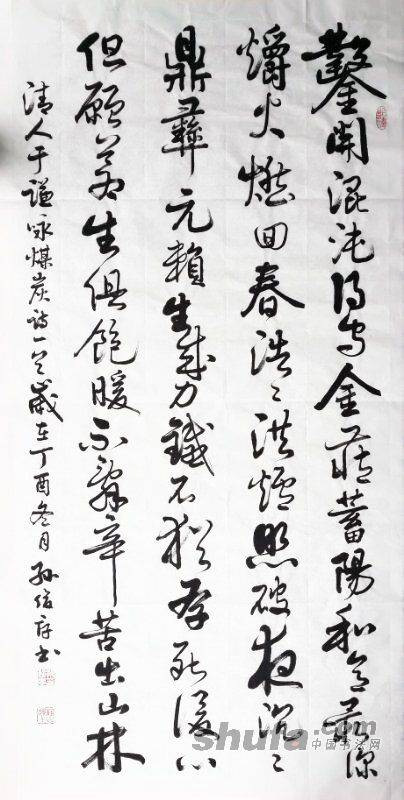 鑿開混沌得烏金藏蓄陽和意最深
爝火燃回春浩〻洪爐照破夜沉〻
鼎彝元賴生成力鐵石猶存死後心
但願蒼生俱飽暖不辭辛苦出山林
清人于謙詠煤炭詩一首歲在丁酉冬月孫書
shufa.com
中国书法网